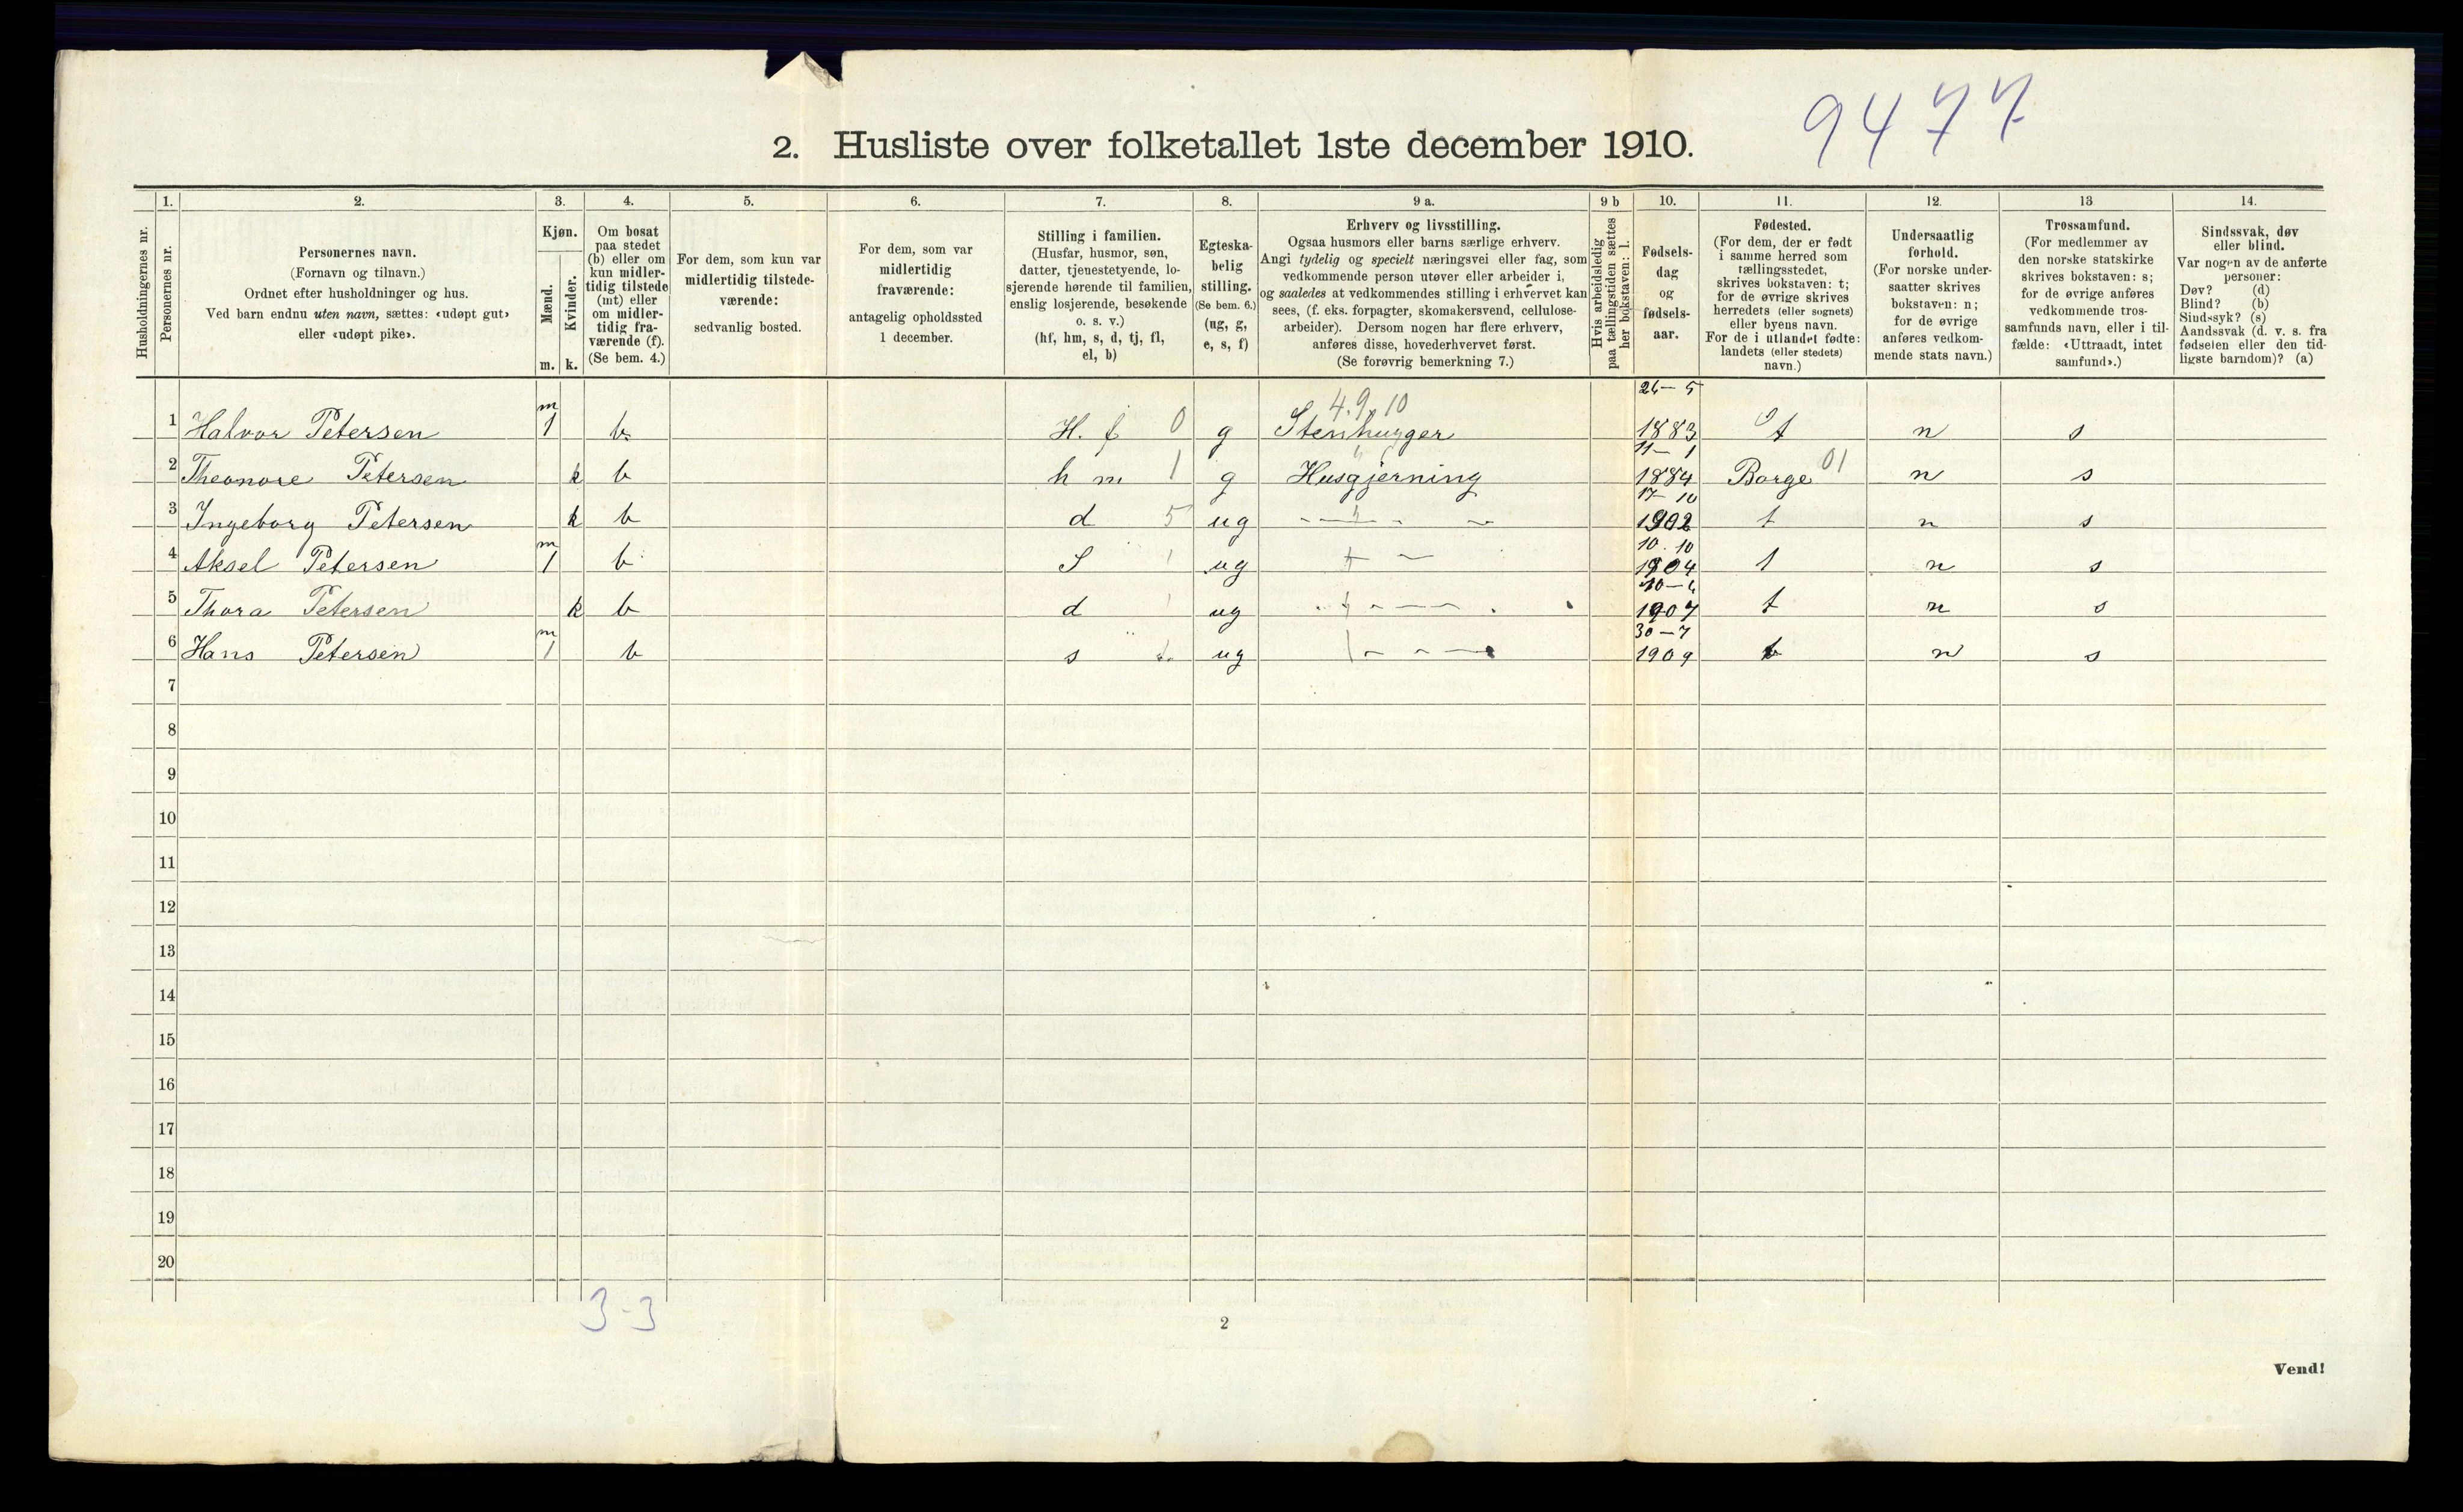 9477
2. Husliste over folketallet 1ste december 1910.
Husholdningernes nr.
1.
Personernes nr.
2.
Personernes navn.
(Fornavn og tilnavn.)
Ordnet efter husholdninger og hus.
Ved barn endnu uten navn, sættes: «udøpt gut»
eller «udøpt pike».
3.
Kjøn.
Mænd.
Kvinder.
m. k.
4.
Om bosat
paa stedet
(b) eller om
kun midler-
tidig tilstede
(mt) eller
om midler-
tidig fra-
værende (f).
(Se bem. 4.)
5.
For dem, som kun var
midlertidig tilstede-
værende:
sedvanlig bosted.
6.
For dem, som var
midlertidig
fraværende:
antagelig opholdssted
1 december.
7.
Stilling i familien.
(Husfar, husmor, søn,
datter, tjenestetyende, lo-
sjerende hørende til familien,
enslig losjerende, besøkende
o. s. v.)
(hf, hm, s, d, tj, fl,
el, b)
8.
Egteska-
belig
stilling.
(Se bem. 6.)
(ug, g,
e, s, f)
9 a.
Erhverv og livsstilling.
Ogsaa husmors eller barns særlige erhverv.
Angi tydelig og specielt næringsvei eller fag, som
vedkommende person utøver eller arbeider i,
og saaledes at vedkommendes stilling i erhvervet kan
sees, (f. eks. forpagter, skomakersvend, cellulose-
arbeider). Dersom nogen har flere erhverv,
anføres disse, hovederhvervet først.
(Se forøvrig bemerkning 7.)
9 b
Hvis arbeidsledig
paa tællingstiden sættes
her bokstaven: l.
10.
Fødsels-
dag
og
fødsels-
aar.
11.
Fødested.
(For dem, der er født
i samme herred som
tællingsstedet,
skrives bokstaven: t;
for de øvrige skrives
herredets (eller sognets)
eller byens navn.
For de i utlandet fødte:
landets (eller stedets)
navn.)
12.
Undersaatlig
forhold.
(For norske under-
saatter skrives
bokstaven: n;
for de øvrige
anføres vedkom-
mende stats navn.)
13
Trossamfund.
(For medlemmer av
den norske statskirke
skrives bokstaven: s;
for de øvrige anføres
vedkommende tros-
samfunds navn, eller i til-
fælde: «Uttraadt, intet
samfund».)
14.
Sindssvak, døv
eller blind.
Var nogen av de anførte
personer:
Døv? (d)
Blind? (b)
Sindssyk? (s)
Aandssvak (d. v. s. fra
fødselen eller den tid-
ligste barndom)? (a)
4.9.10
1 Halvor Petersen m 1 b. H. f 0 g Stenhugger 1883 t n s
2 Theonore Petersen k b h m 1 g Husgjerning 11-1 1884 Borge 01 n s
3 Ingeborg Petersen k b d 5 ug 17-10 1902 t n s
4 Aksel Petersen m 1 b S 1 ug 10.10 1904 t n s
5 Thora Petersen k b d ug 1907 t n s
6 Hans Petersen m 1 b s ug 30-7 1909 t n s
7
8
9
10
11
12
13
14
15
16
17
18
19
20
3-3
2
Vend!